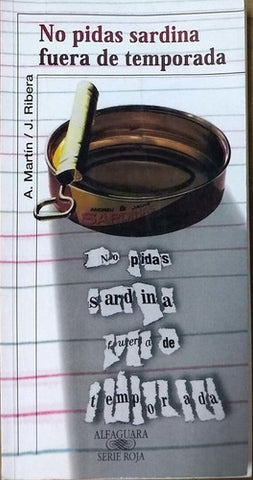 No pidas sardina
fuera de temporada
A. Martín / J. Ribera
No pidas
sardina
fuera de
temporada
ALFAGUARA
SERIE ROJA